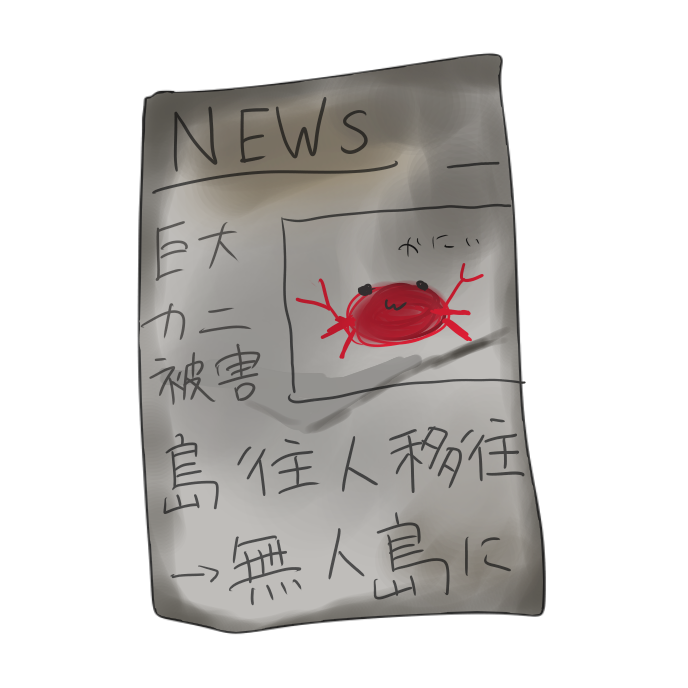 NEWS
巨大
カニ
被害
かにぃ
島住人移住
→無人島に